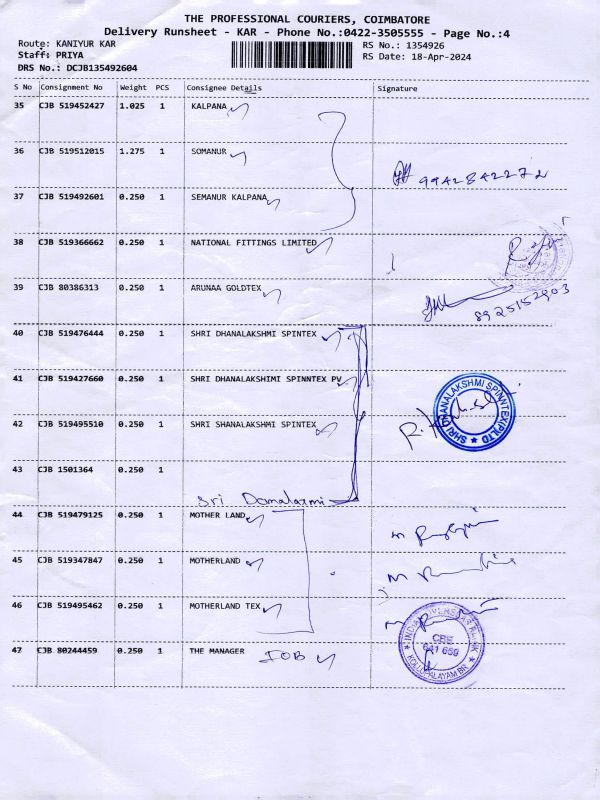 THE PROFESSIONAL COURIERS, COIMBATORE
Delivery Runsheet - KAR - Phone No.:0422-3505555 - Page No.:4
Route: KANIYUR KAR RS No.: 1354926
Staff: PRIYA RS Date: 18-Apr-2024
DRS No.: DCJB135492604
S No Consignment No Weight PCS Consignee Details Signature
35 CJB 519452427 1.025 1 KALPANA
36 CJB 519512015 1.275 1 SOMANUR
9942842272
37 CJB 519492601 0.250 1 SEMANUR KALPANA
38 CJB 519366662 0.250 1 NATIONAL FITTINGS LIMITED
39 CJB 80386313 0.250 1 ARUNAA GOLDTEX
8925152903
40 CJB 519476444 0.250 1 SHRI DHANALAKSHMI SPINTEX
41 CJB 519427660 0.250 1 SHRI DHANALAKSHIMI SPINNTEX PV
SHRI DHANALAKSHMI SPINNTEX (P) LTD
42 CJB 519495510 0.250 1 SHRI SHANALAKSHMI SPINTEX
43 CJB 1501364 0.250 1
Sri Danalaxmi
44 CJB 519479125 0.250 1 MOTHER LAND
45 CJB 519347847 0.250 1 MOTHERLAND
46 CJB 519495462 0.250 1 MOTHERLAND TEX
47 CJB 80244459 0.250 1 THE MANAGER IOB
INDIAN OVERSEAS BANK
CRE
641 659